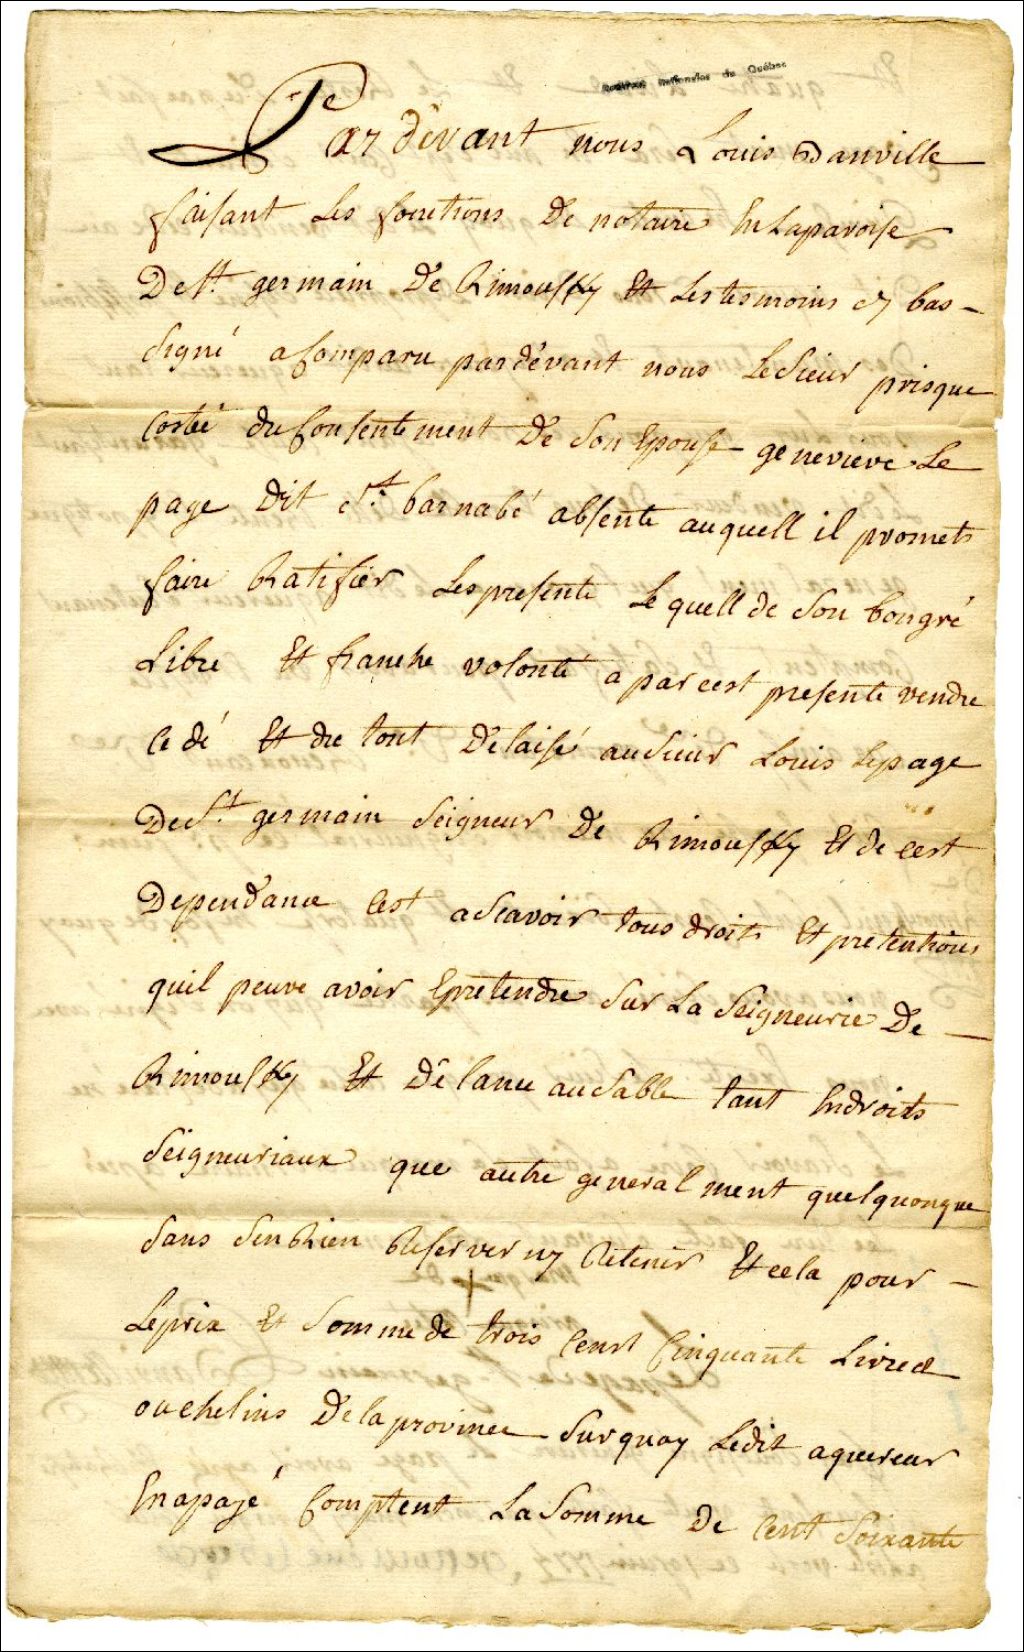 Archives Nationales de Québec
Par dêvant nous Louis Danville
faisant Les fonctions De notaire En Laparoise
De St. germain De Rimousky Et Les tesmoins cy bas -
signé a Comparu pardêvant nous Le Sieur prisque
Costé du Consentement De Son Epouse genevieve Le
page dit St. barnabé absente auquell il promets
faire Ratifier Les presente Le quell de Son bongré
Libre Et franche volonté a par cest presente vendu
Cedé Et du tout Délaisé au Sieur Louis Lepage
De St. germain Seigneur De Rimousky Et de Cest
Dependance Cest a Scavoir tous droits Et pretentions
quil peuve avoir Epretendre Sur La Seigneurie De
Rimousky Et Dé Lance au Sable tant En droits
Seigneuriaux que autre general ment quelquongue
Sans Sen Rien Reserver ny Retenir Et cela pour -
Le prix Et Somme de trois Censt Cinquante Livres
ou chelins De la province Sur quoy Ledit aquereur
En a payé Comptent La Somme De Cent Soixante